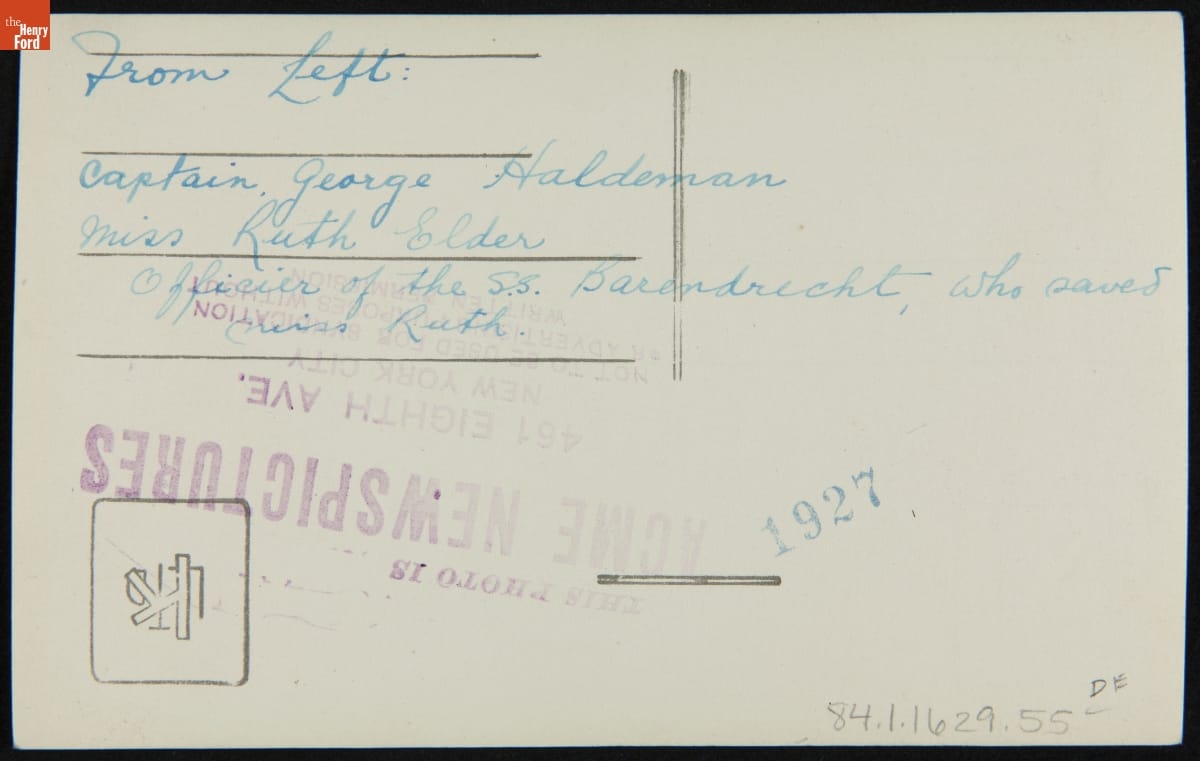 the
Henry
Ford
From Left:
Captain, George Haldeman
Miss Ruth Elder
Officier of the S.S. Barendrecht, who saved
miss Ruth.
WRITTEN PERMISSION
OR ADVERTISING PURPOSES WITHOUT
NOT TO BE USED FOR SYNDICATION
NEW YORK CITY
461 EIGHTH AVE.
ACME NEWSPICTURES
THIS PHOTO IS
1927
DE
84.1.1629.55